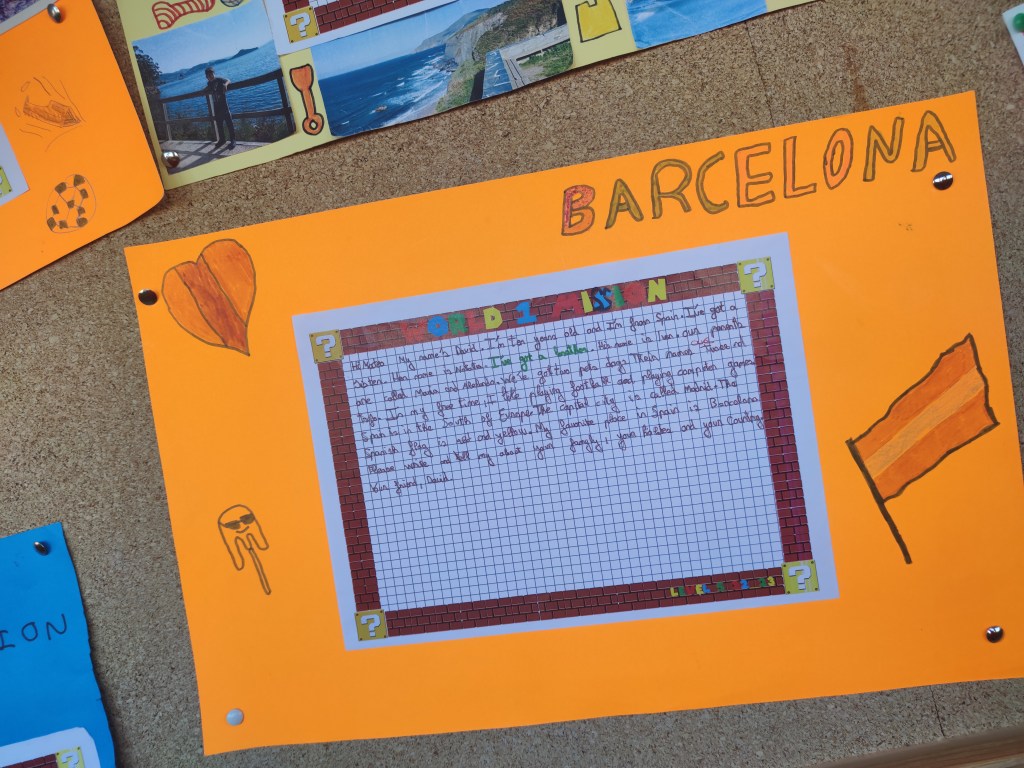 BARCELONA
WORLD 1 MISSION
My name's David. I'm years old and I'm from Spain. I've got a
sister. Her name is I've got a brother. His name is parents
are called and We've got two pets, dogs. Their names
In my free time I like playing football and playing computer games.
Spain is in the South of Europe. The capital city is called Madrid. The
Spanish flag is red and yellow. My favorite place in Spain is Barcelona.
Please write me tell my about your family, your hobbies and your country.
friend David.
ION